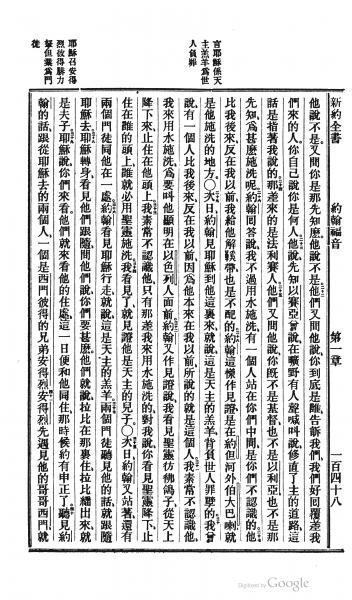 新約全書 約翰福音 第一章 一百四十八
他說不是又問你是那先知麽他說不是他們又問他說你到底是誰告訴我們我們好囘覆差我
們來的人你自己說你是何人他說先知以賽亞曾說在曠野有人聲喊叫說修直了主的道路這
話是指著我說的那差來的是法利賽人他們又問他說你既不是基督也不是以利亞也不是那
先知爲甚麽施洗呢約翰囘答說我不過用水施洗有一個人站在你們中間是你們不認識的他
比我後來反在我以前我給他解鞋帶也是不配的約翰這樣作見證是在約但河外伯大巴喇就
言耶穌係天
主羔羊爲世
人負罪
是他施洗的地方○次日約翰見耶穌到他這裏來就說這是天主的羔羊背負世人罪孽的我曾
說有一個人比我後來反在我以前因爲他本來在我以前所說的就是這個人我素常不認識他
我來用水施洗爲要叫他顯明在以色列人面前約翰又作見證說我看見聖靈仿佛鴿子從天上
降下來止住在他頭上我素常不認識他只有那差我來用水施洗的對我說你看見聖靈降下止
住在誰的頭上誰就必用聖靈施洗我看見了就見證他是天主的兒子○次日約翰又站著還有
兩個門徒同他在一處約翰看見耶穌行走就說這是天主的羔羊兩個門徒聽見他的話就跟隨
耶穌去耶穌轉身看見他們跟隨問他們說你們要甚麽他們就說拉比在那裏住拉比繙出來就
是夫子耶穌說你們來看他們就來看他的住處這一日便和他同住那時候約有申正了聽見約
翰的話跟從耶穌去的兩個人一個是西門彼得的兄弟安得烈安得烈先遇見他的哥哥西門就
耶穌召安得
烈彼得腓力
拿但業爲門
徒
Digitized by Google